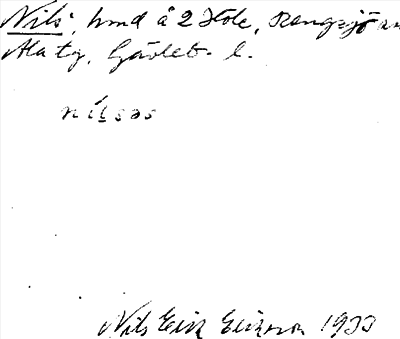 Nils, hmd å 2 stole, Rengsjö sn
Ala tg, Gävleb. l.
nilsəs
Nils Eric Ericsson 1933